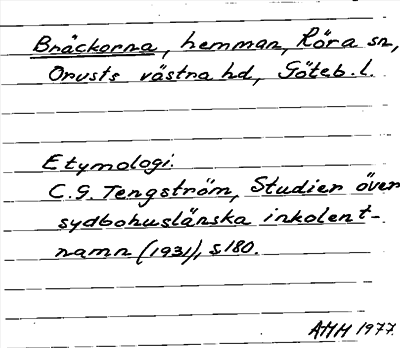 Bräckorna, hemman, Röra sn,
Orusts västra hd, Göteb. l.
Etymologi.
C.G. Tengström, Studier över
sydbohuslänska inkolent-
namn (1931), s 180.
AHH 1977